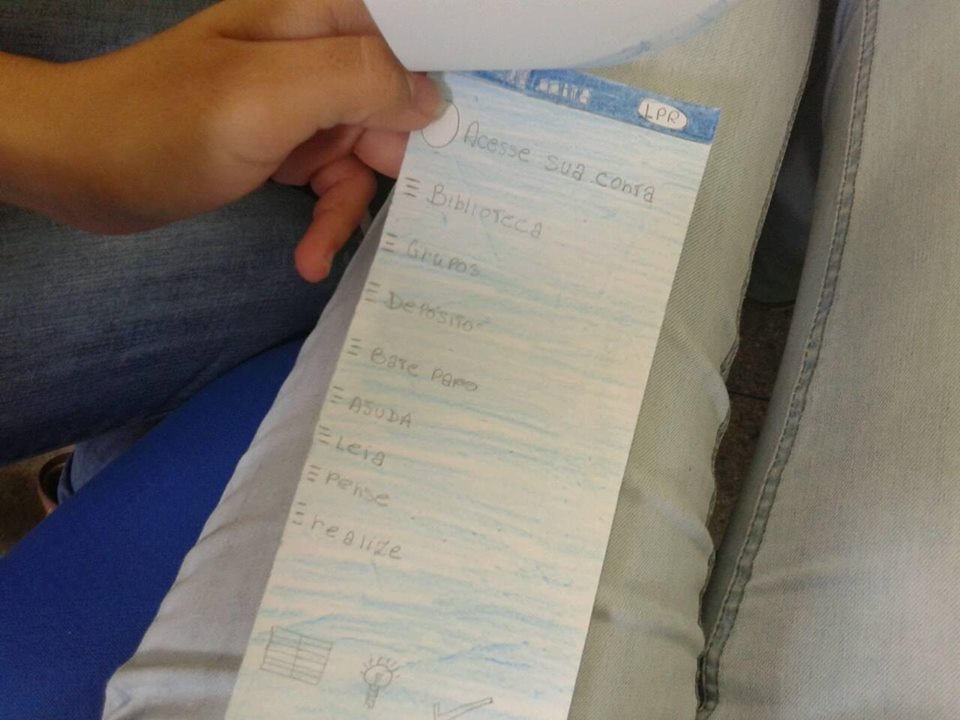 LPR
Acesse sua conta
Biblioteca
Grupos
Depósito
Bate papo
AJUDA
Leia
pense
realize